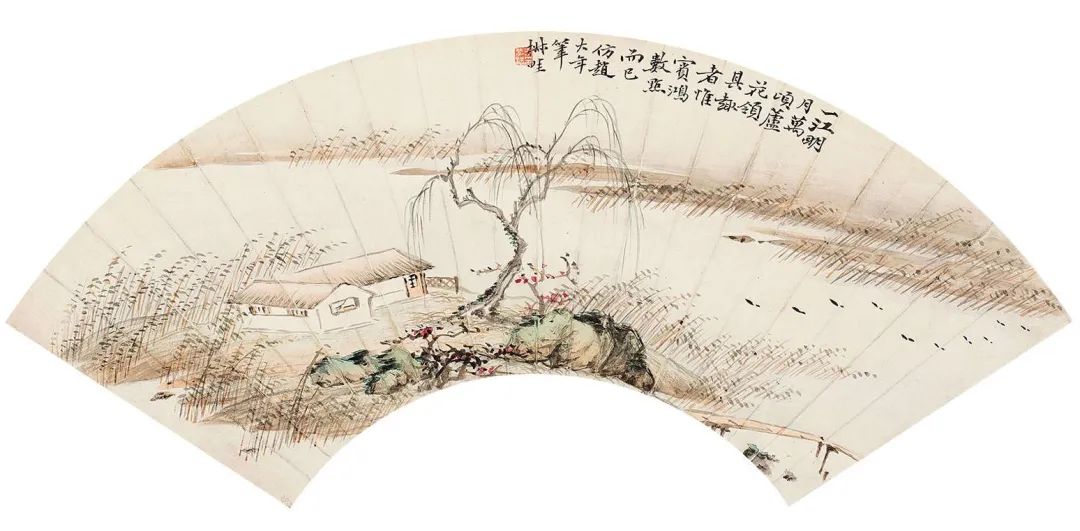 一江明
月萬
頃蘆
花領
其趣
者惟
賓鴻
數點
而已
仿趙
大年
筆
畦